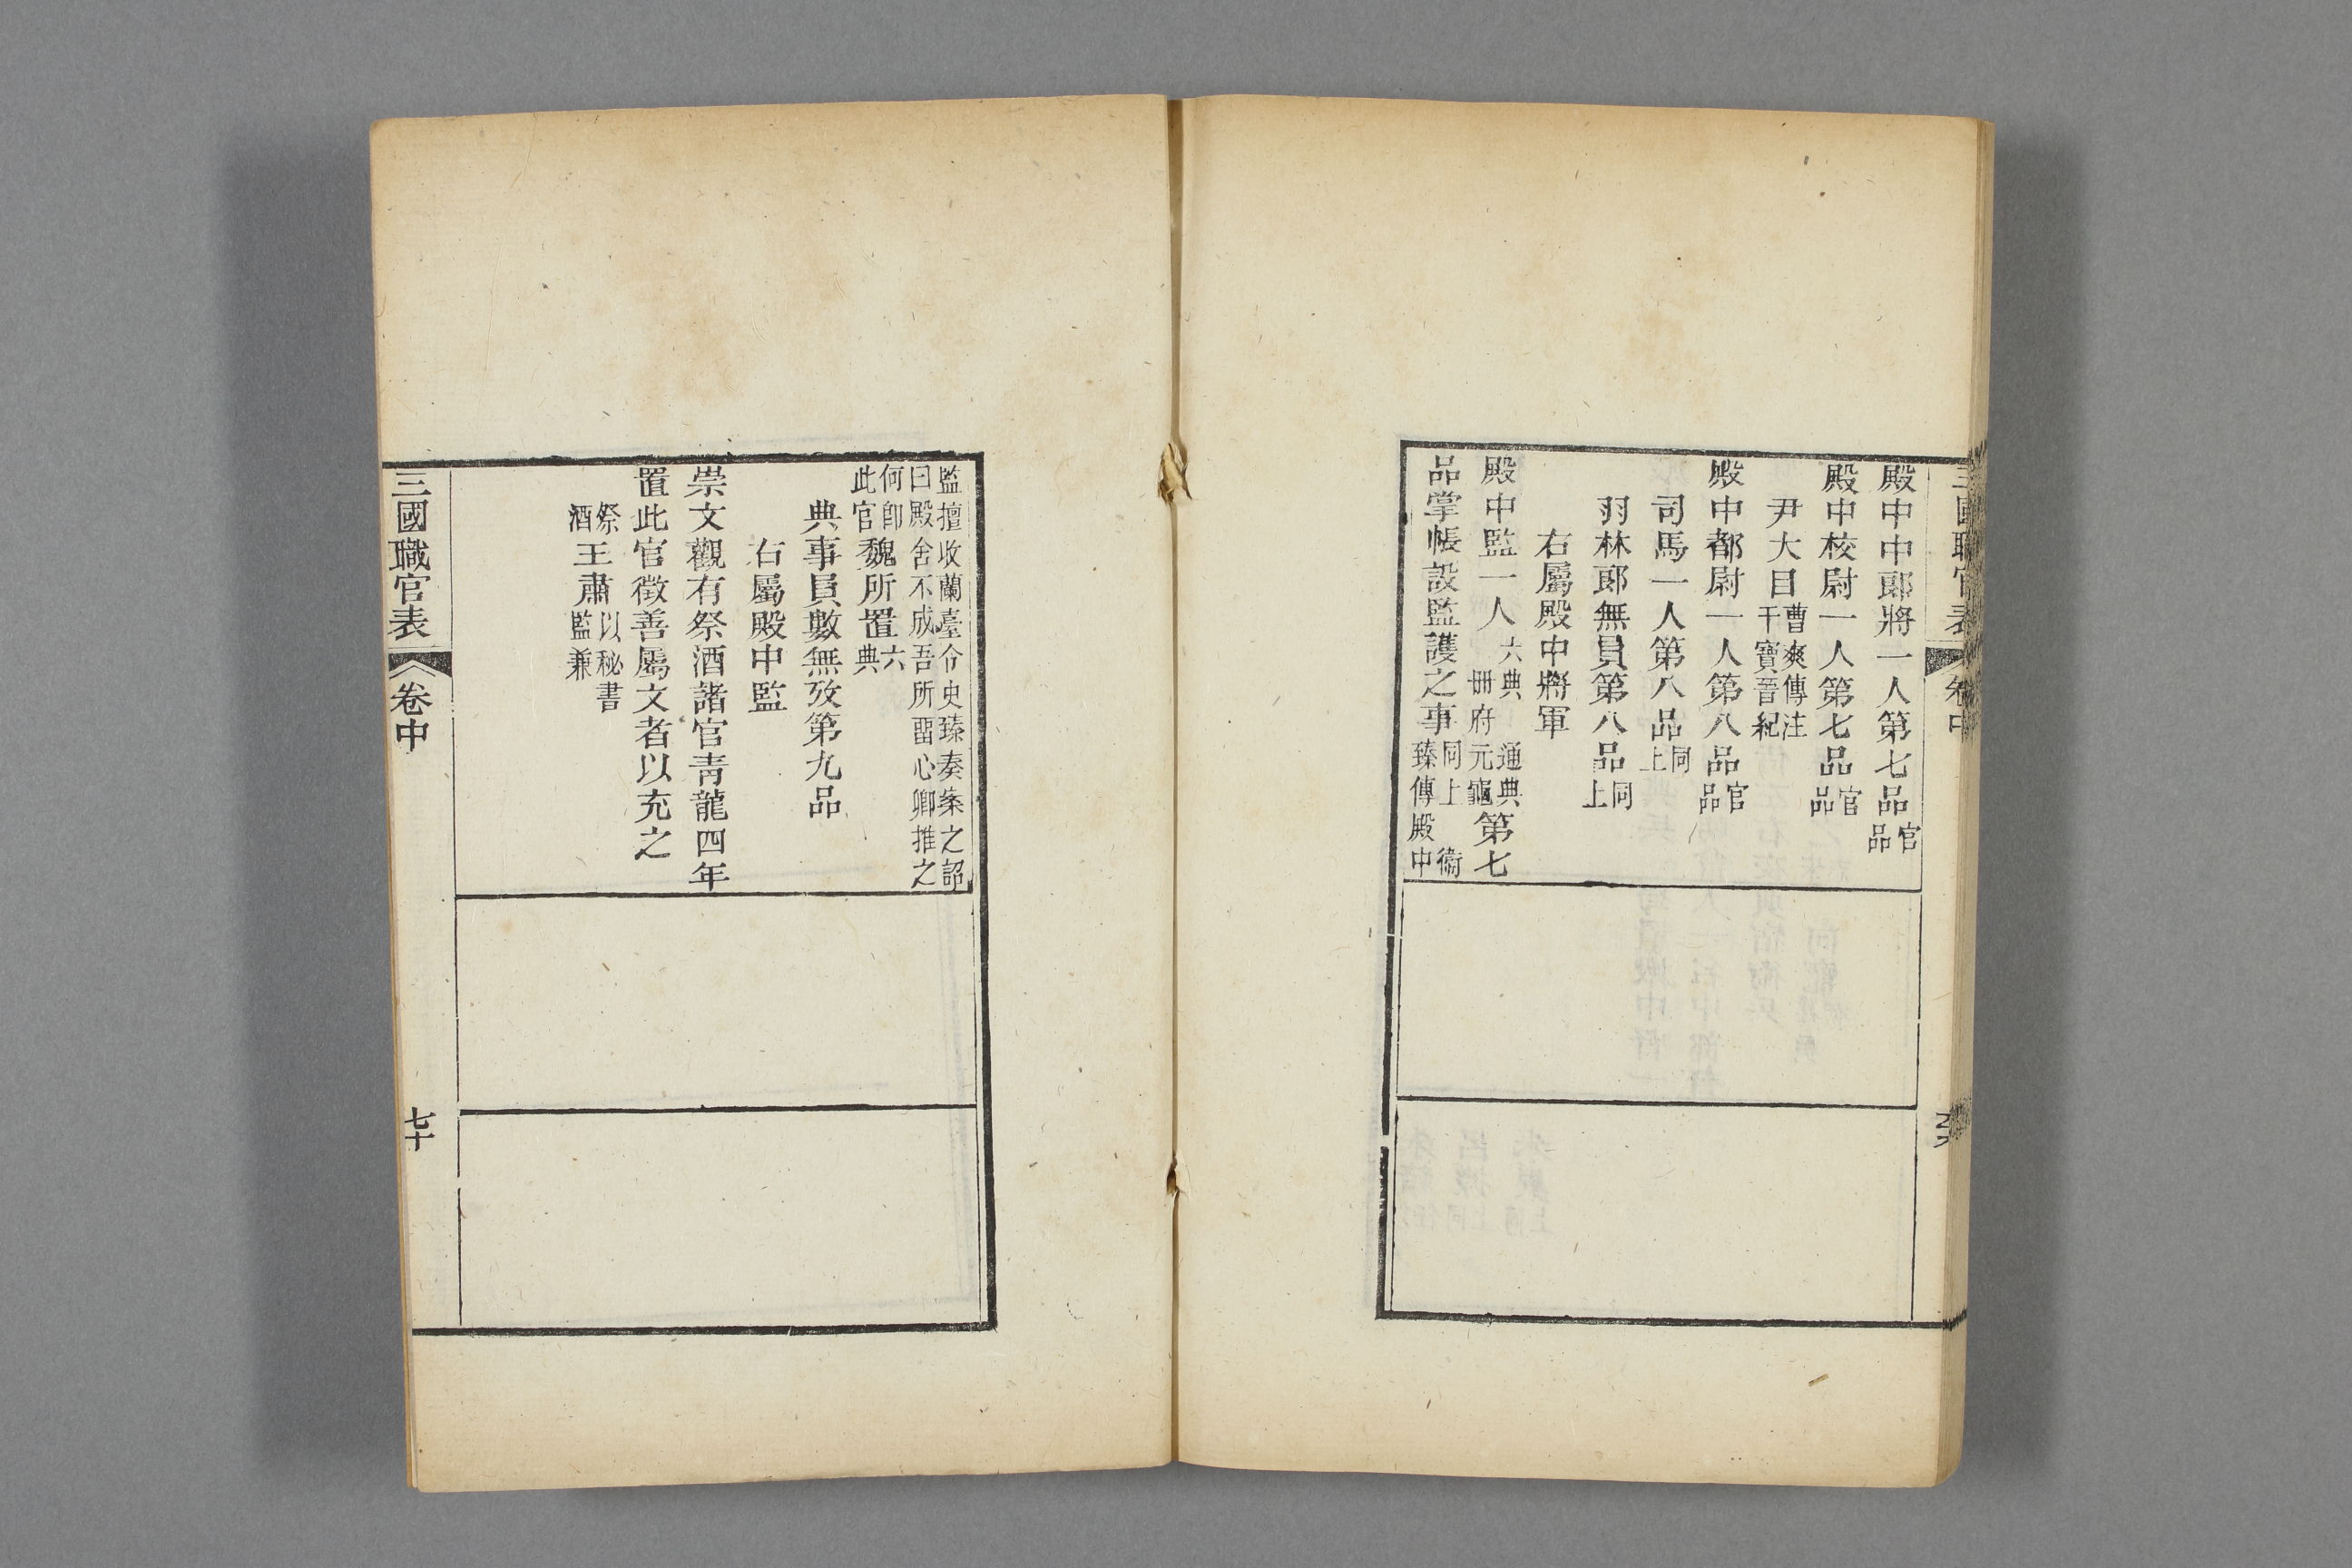 殿中中郎將一人第七品官品
殿中校尉一人第七品官品
尹大目曹爽傳注干寶晉紀
殿中都尉一人第八品官品
司馬一人第八品同上
羽林郎無員第八品同上
右屬殿中將軍
殿中監一人六典通典冊府元龜第七
品掌帳設監護之事同上衞臻傳殿中
三國職官表 卷中
監擅收蘭臺令史臻奏案之詔曰殿舍不成吾所畱心卿推之
何卽此官魏所置六典
典事員數無攷第九品
右屬殿中監
崇文觀有祭酒諸官青龍四年
置此官徵善屬文者以充之
祭酒王肅以秘書監兼
三國職官表 卷中 七十